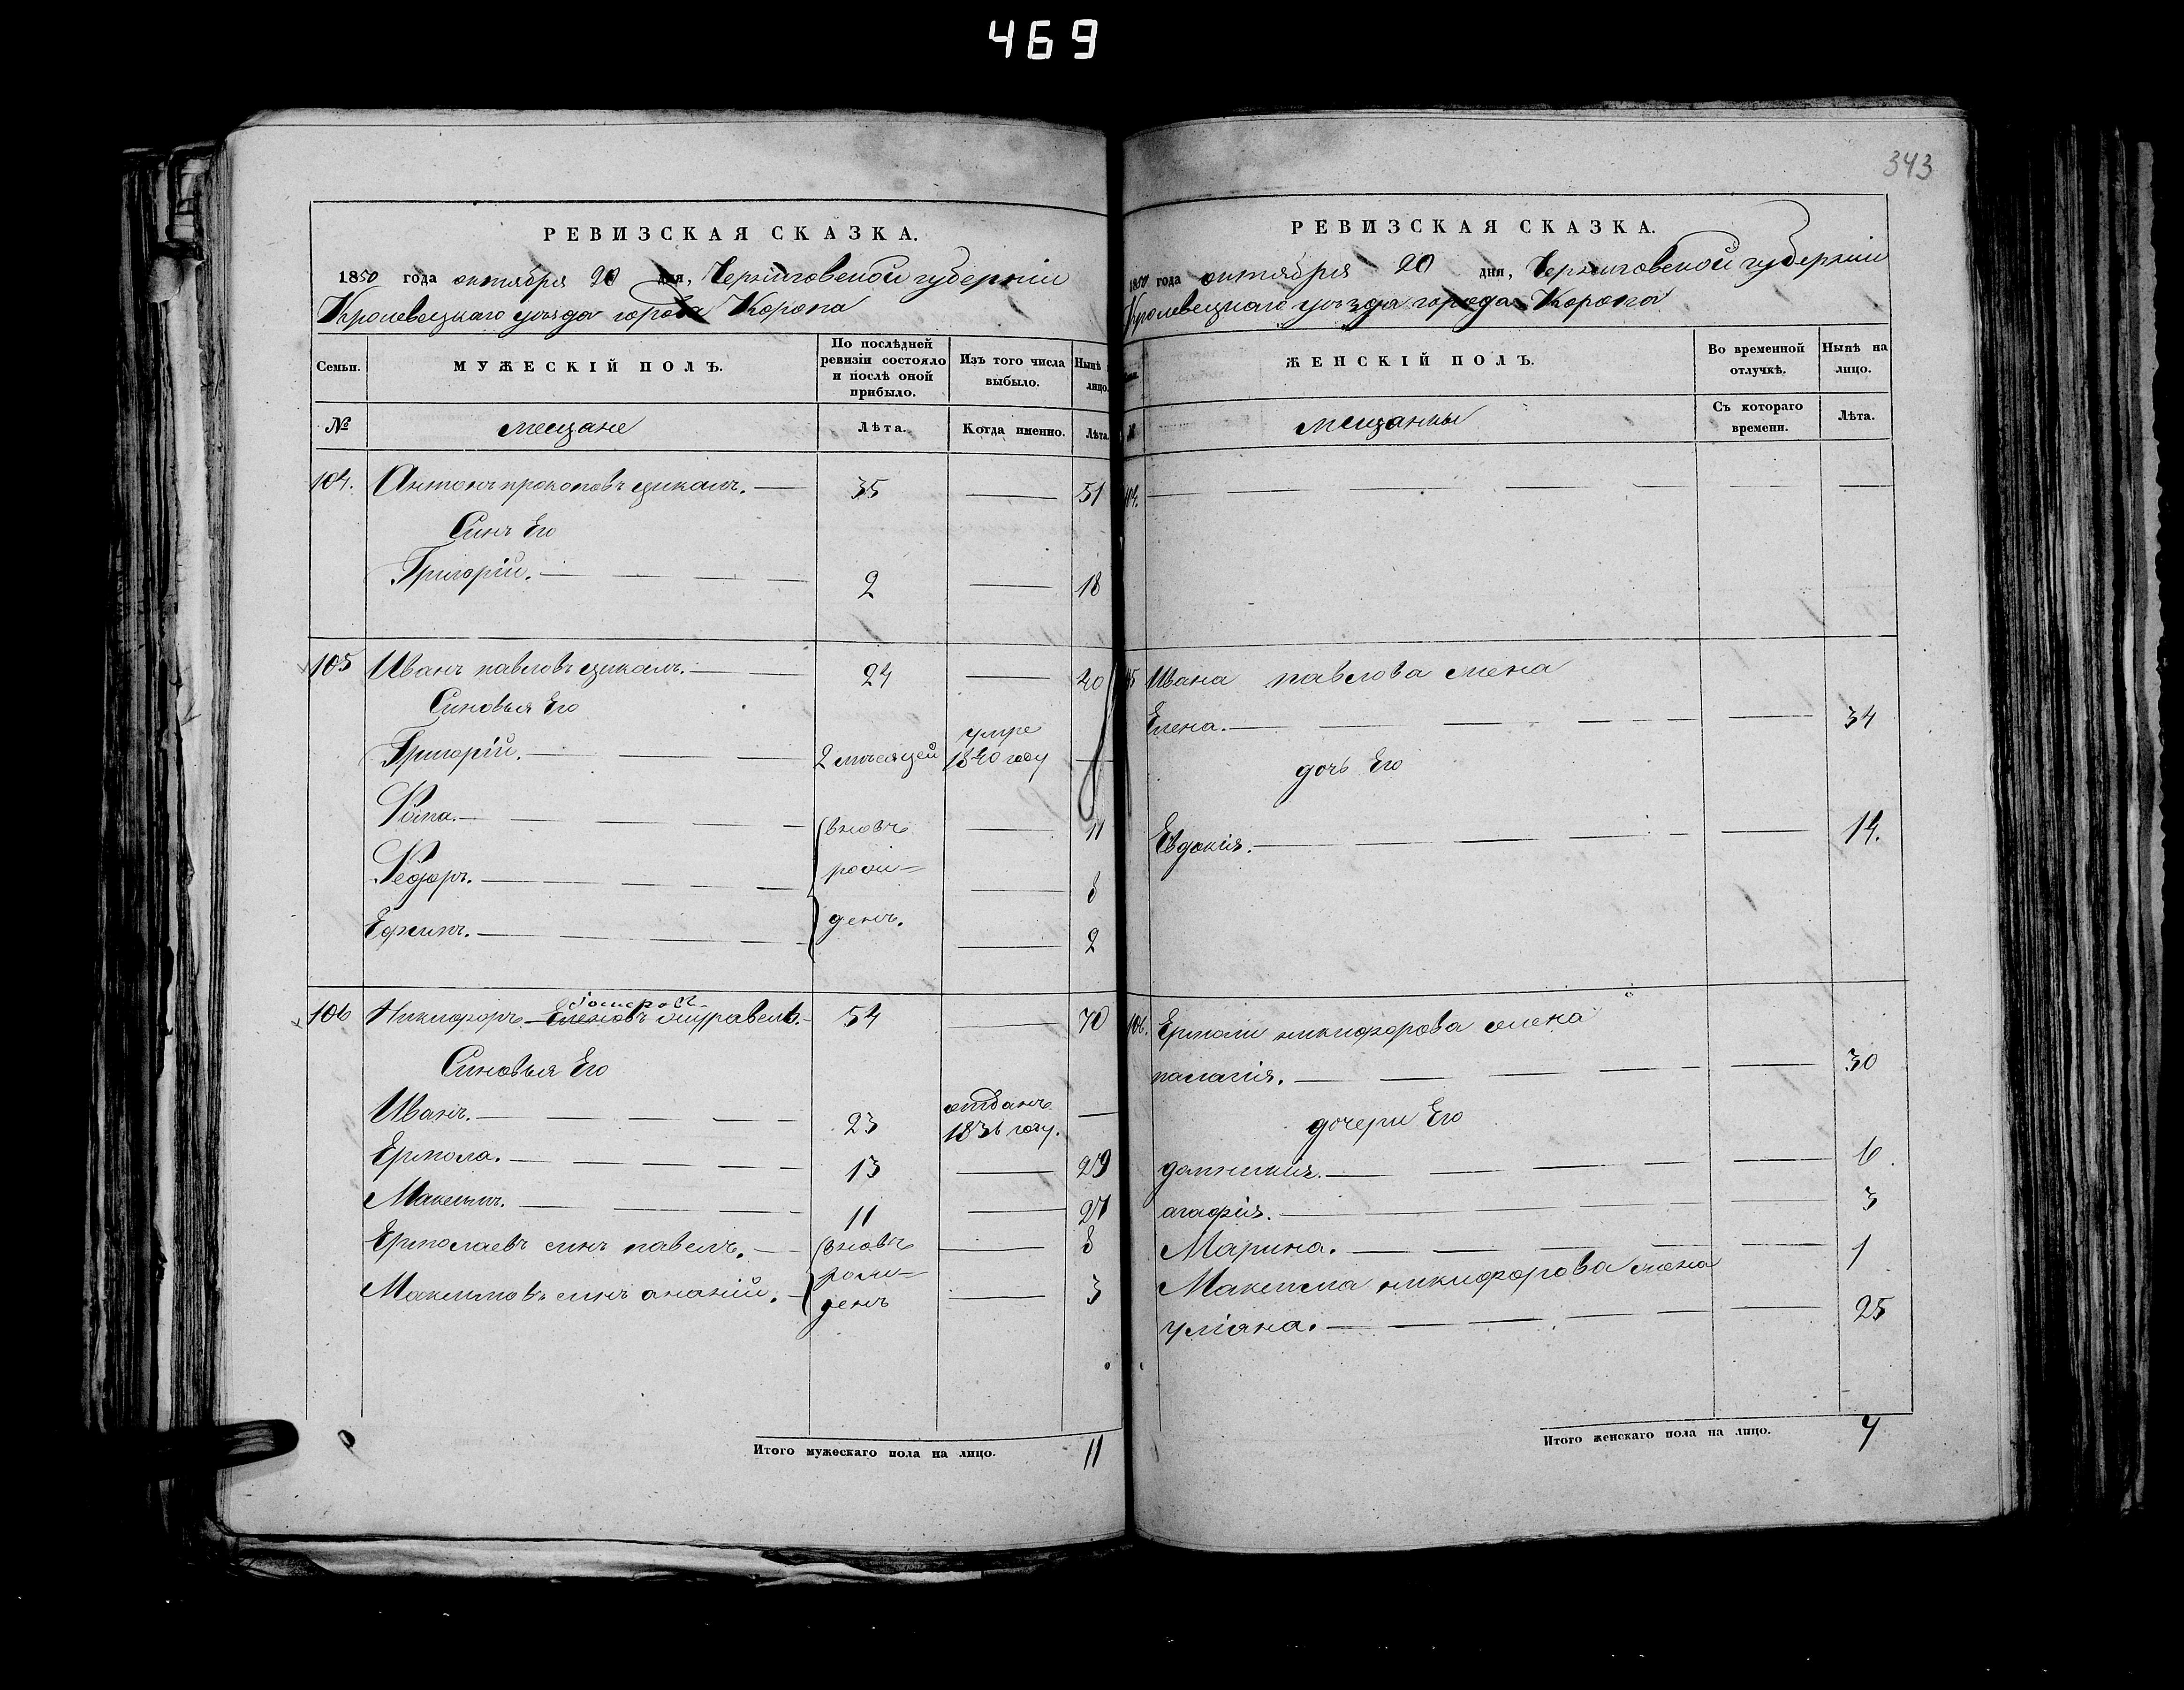 469
343
РЕВИЗСКАЯ СКАЗКА.
1850 года октября 20 дня, Черниговской губерніи
Кролевецкаго уѣзда города Коропа
Семьи. МУЖЕСКІЙ ПОЛЪ. По послѣдней ревизіи состояло и послѣ оной прибыло. Изъ того числа выбыло. Нынѣ лицо.
№ мещане Лѣта. Когда именно. Лѣта.
104. Антонъ прокоповъ цикалъ. 35 51
Синъ Его
Григорій. 2 18
105 Иванъ павловъ цикалъ. 24 40
Синовья Его
Григорій. 2 мѣсяцей умре 1840 году
Фома. вновъ 11
Федоръ. рожи= 8
Ефимъ. денъ. 2
106 Никифоръ журавель. 54 70
Синовья Его
Иванъ. 23 отданъ 1836 году.
Ермола. 13 29
Максимъ. 11 27
Ермолаевъ синъ павелъ. вновъ 8
Максимовъ синъ ананий. рожи= денъ 3
Итого мужескаго пола на лицо. 11
РЕВИЗСКАЯ СКАЗКА.
1850 года октября 20 дня, Черниговской губерніи
Кролевецкаго уѣзда города Коропа
ЖЕНСКІЙ ПОЛЪ. Во временной отлучкѣ. Нынѣ на лицо.
№ мещанки Съ котораго времени. Лѣта.
104.
105 Ивана павлова жена
Елена. 34
дочь Его
Евдокія. 14.
106. Ермоли никифорова жена
палагія. 30
дочери Его
домникія. 6.
агафія. 3
Марина. 1
Максима никифорова жена
уліяна. 25
Итого женскаго пола на лицо. 7